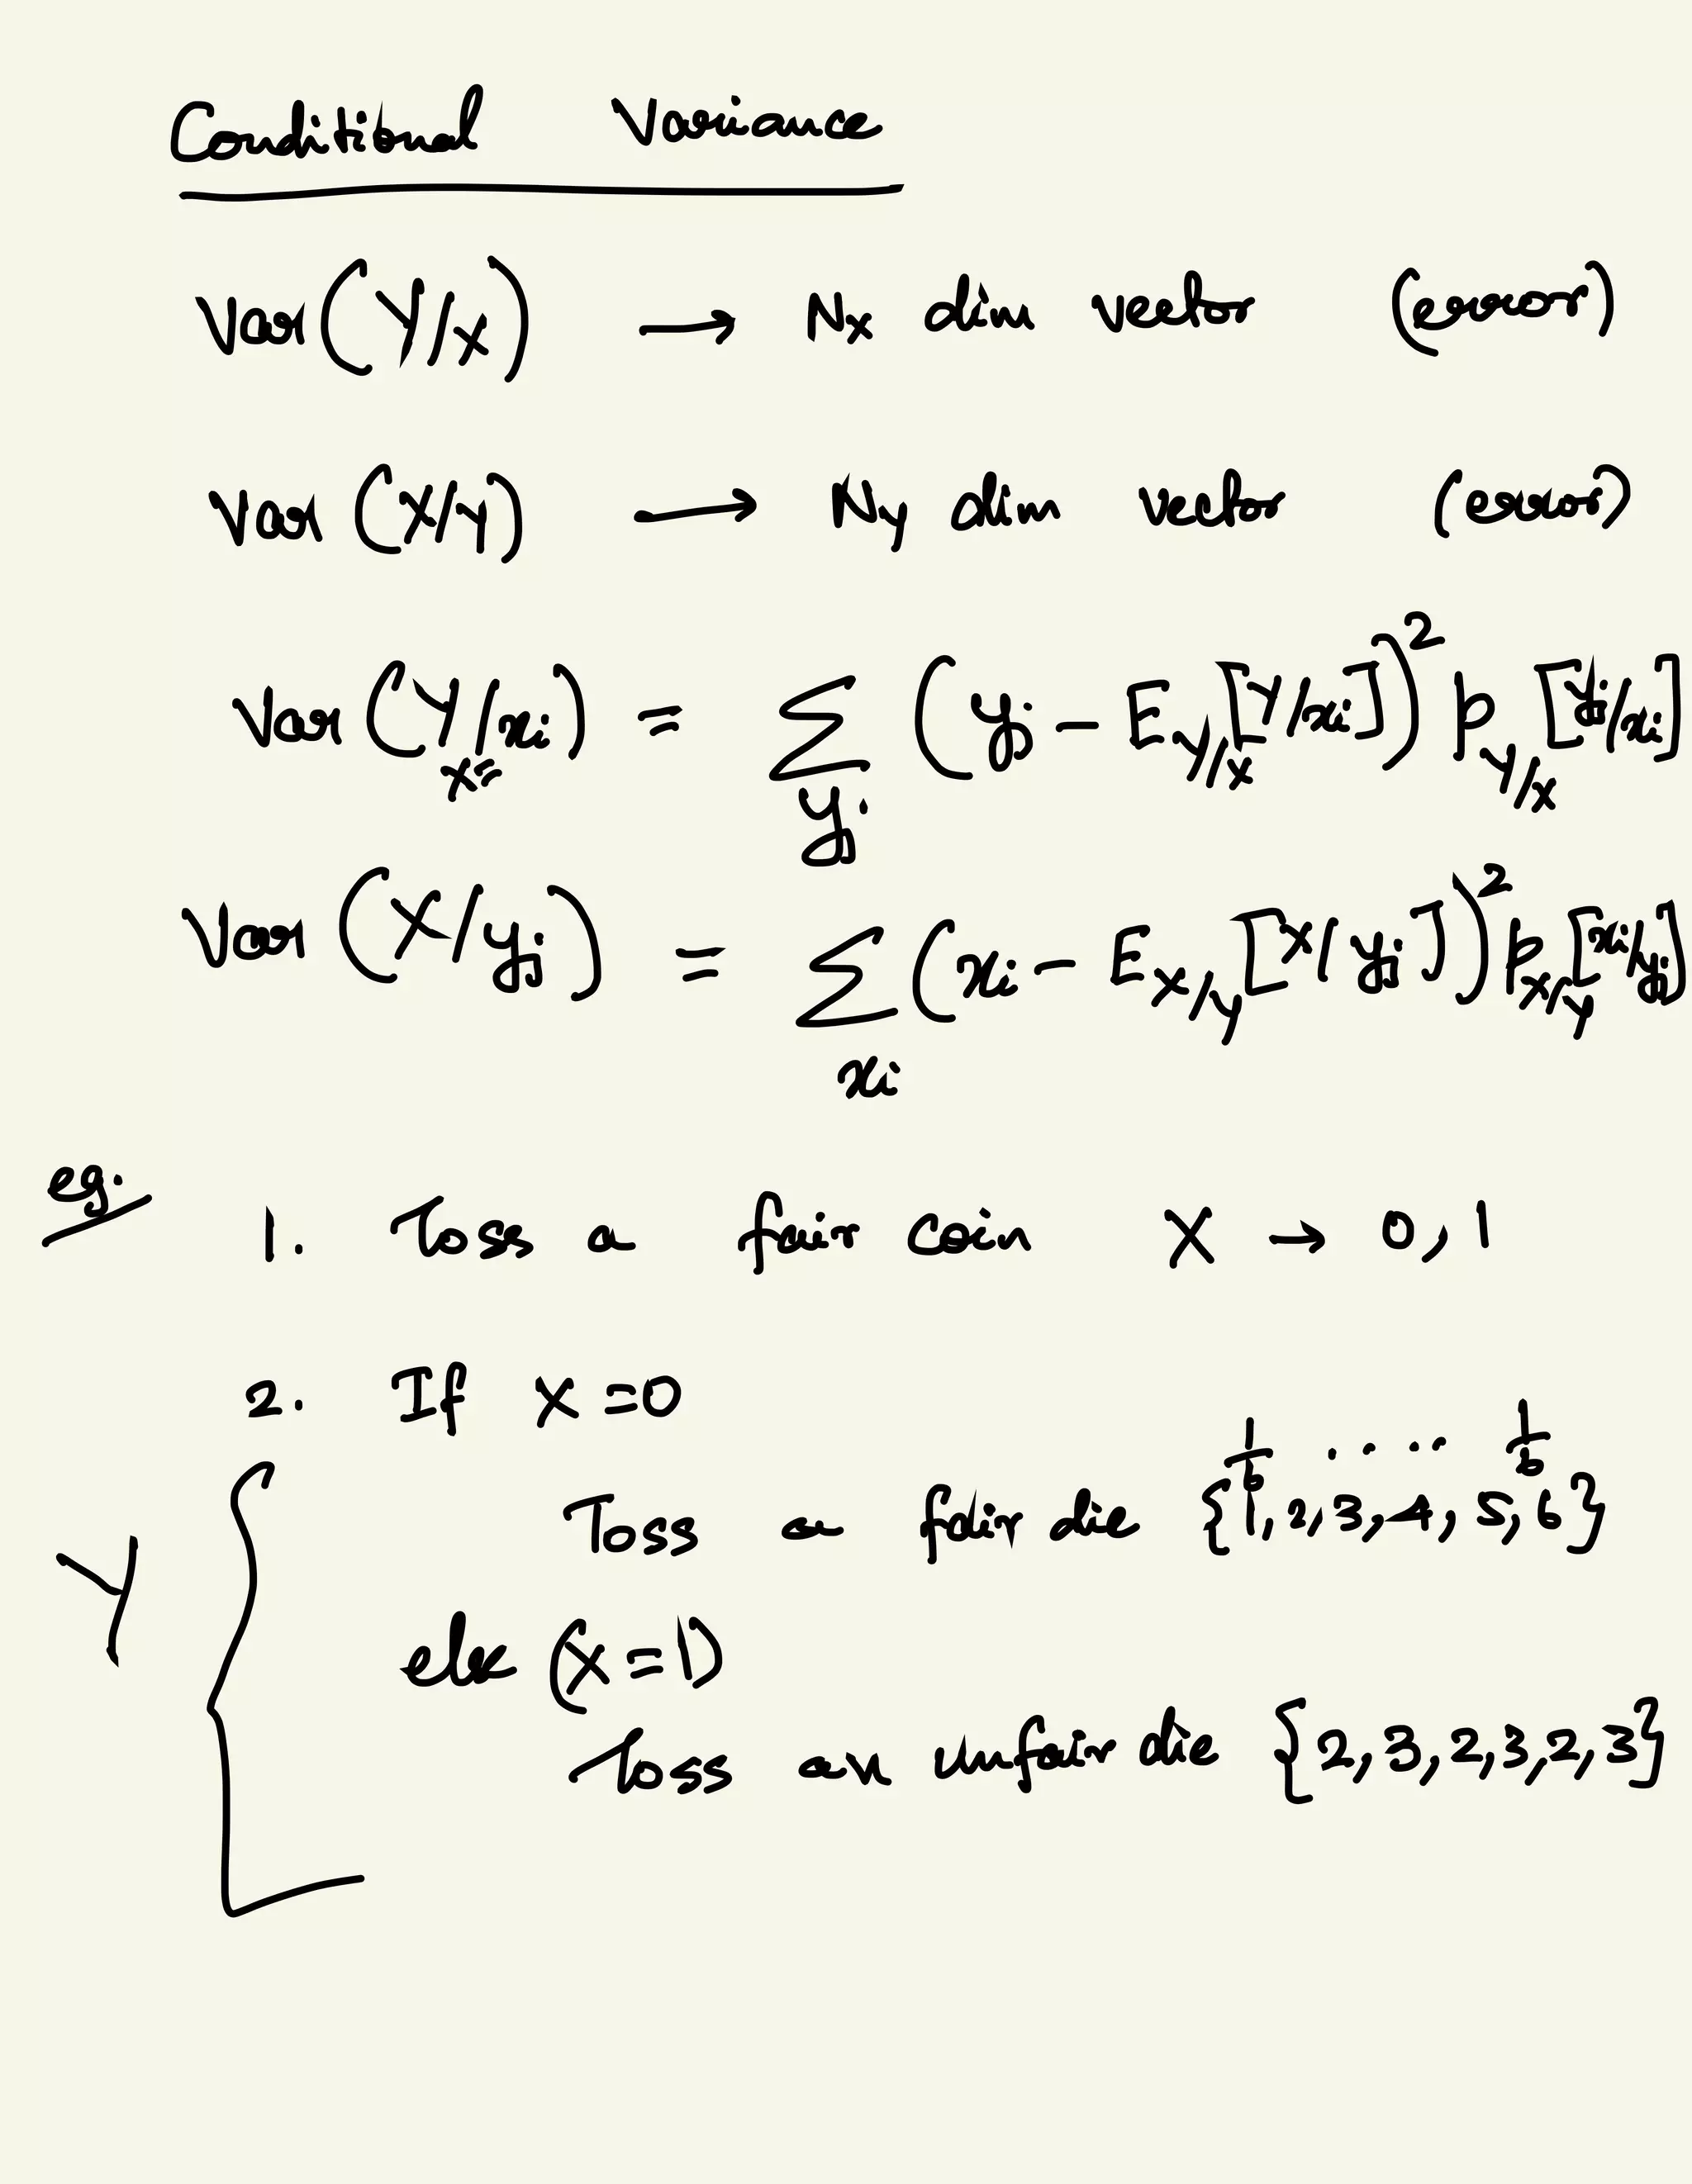 Conditional Variance
Var (Y/X) → Nx dim vector (error)
Var (X/Y) → Ny dim vector (error)
Var (Y/X=xi) = Σ_yj (yj - E_Y/X[Y/xi])² p_Y/X[yj/xi]
Var (X/yj) = Σ_xi (xi - E_X/Y[X/yj])² p_X/Y[xi/yj]
eg. 1. Toss a fair coin X → 0, 1
2. If X = 0
1/6 .... 1/6
Toss a fair die {1, 2, 3, 4, 5, 6}
Y
else (X = 1)
Toss an unfair die {2, 3, 2, 3, 2, 3}